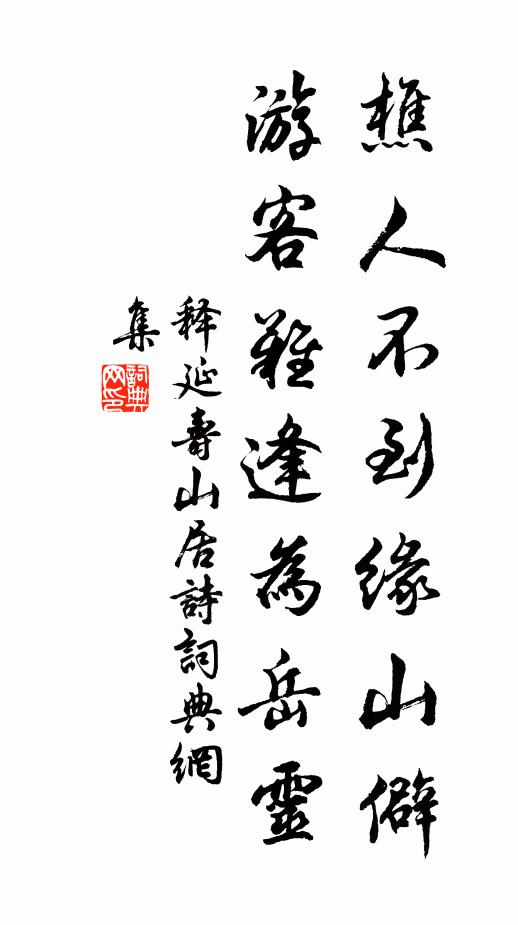 樵人不到缘山僻
游客难逢為岳靈
释延壽山居詩詞典網
集
詞典
网印